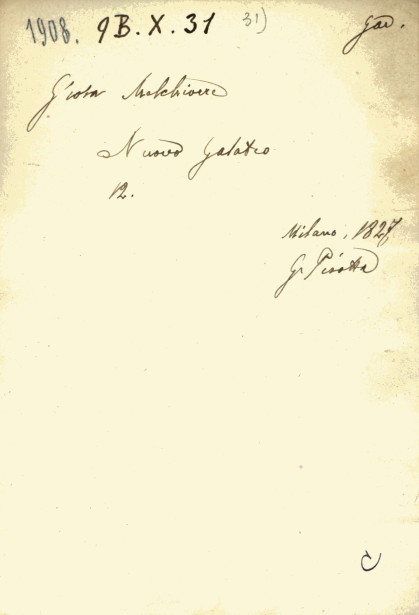 1908. 9 B. X. 31 31) Gae.
Gioia Melchiorre
Nuovo Galateo
12.
Milano, 1827
G. Pirotta
C